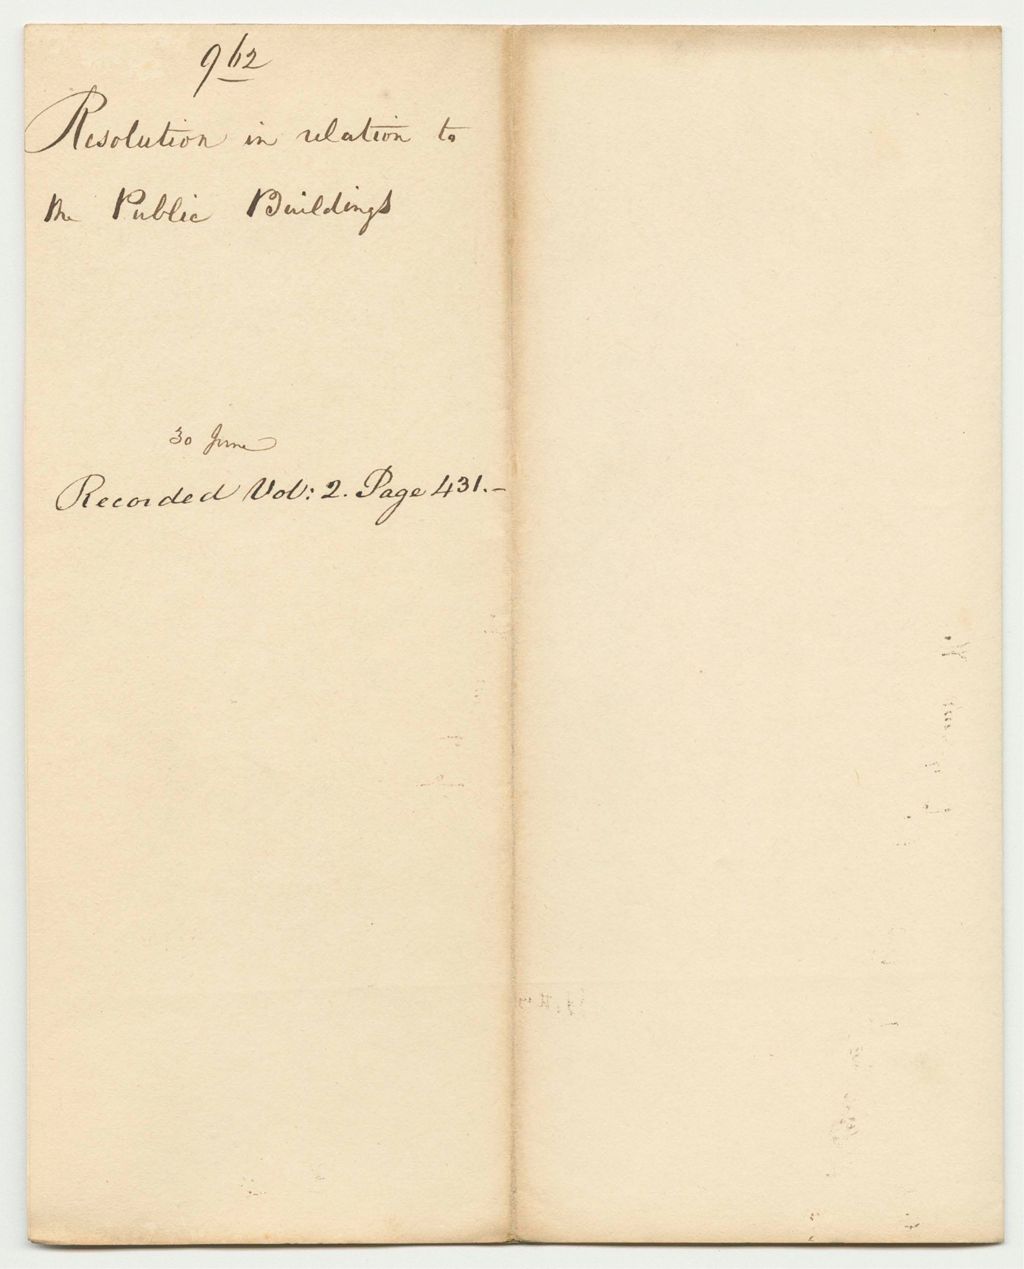 962
Resolution in relation to
the Public Buildings
30 June
Recorded Vol: 2. Page 431.-